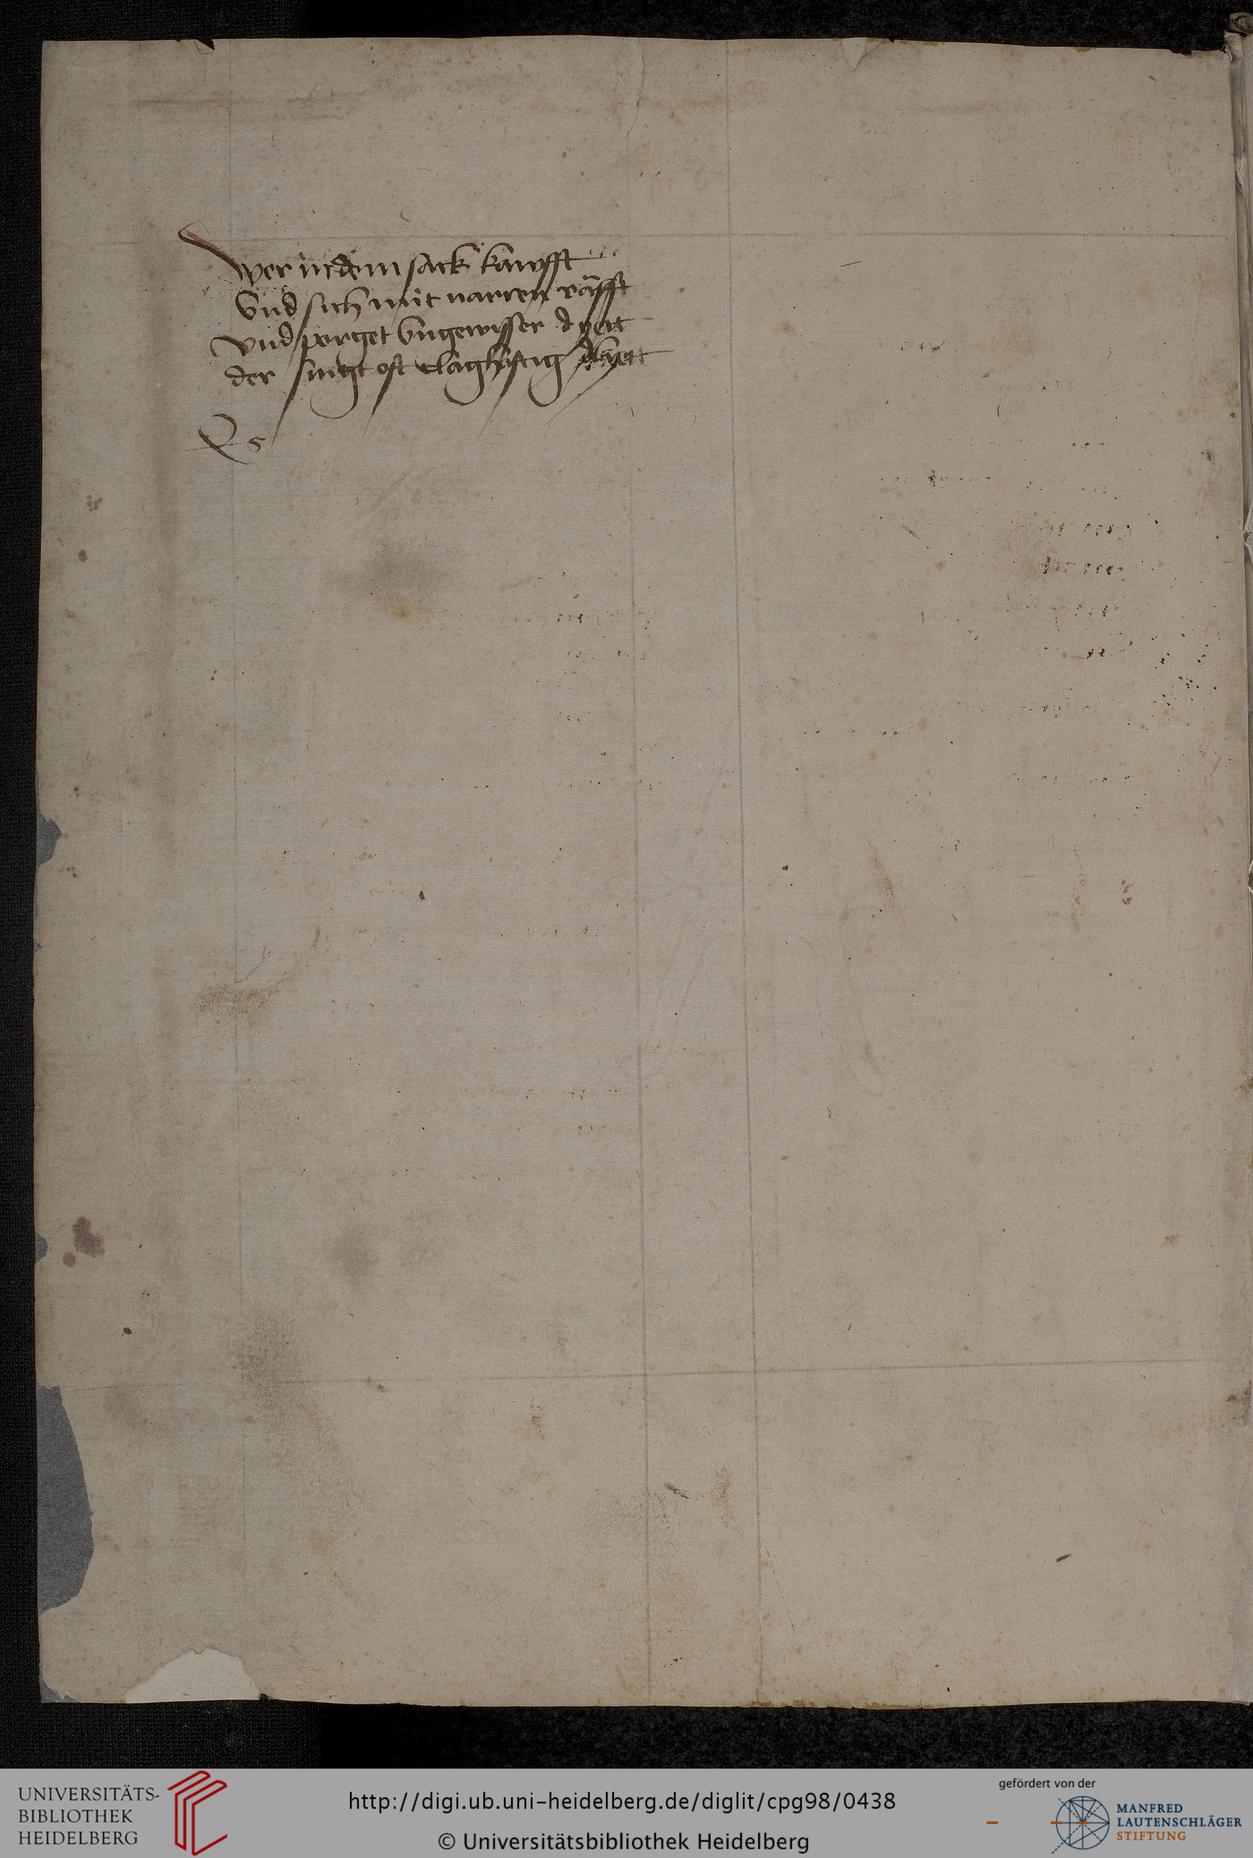 wer in dem sack kawfft
Vnd sich mit narren räfft
Vnd porget vngewisser dyett
der singt oft claghafftig lyett
UNIVERSITÄTS-
BIBLIOTHEK
HEIDELBERG
http://digi.ub.uni-heidelberg.de/diglit/cpg98/0438
© Universitätsbibliothek Heidelberg
gefördert von der
MANFRED
LAUTENSCHLÄGER
STIFTUNG